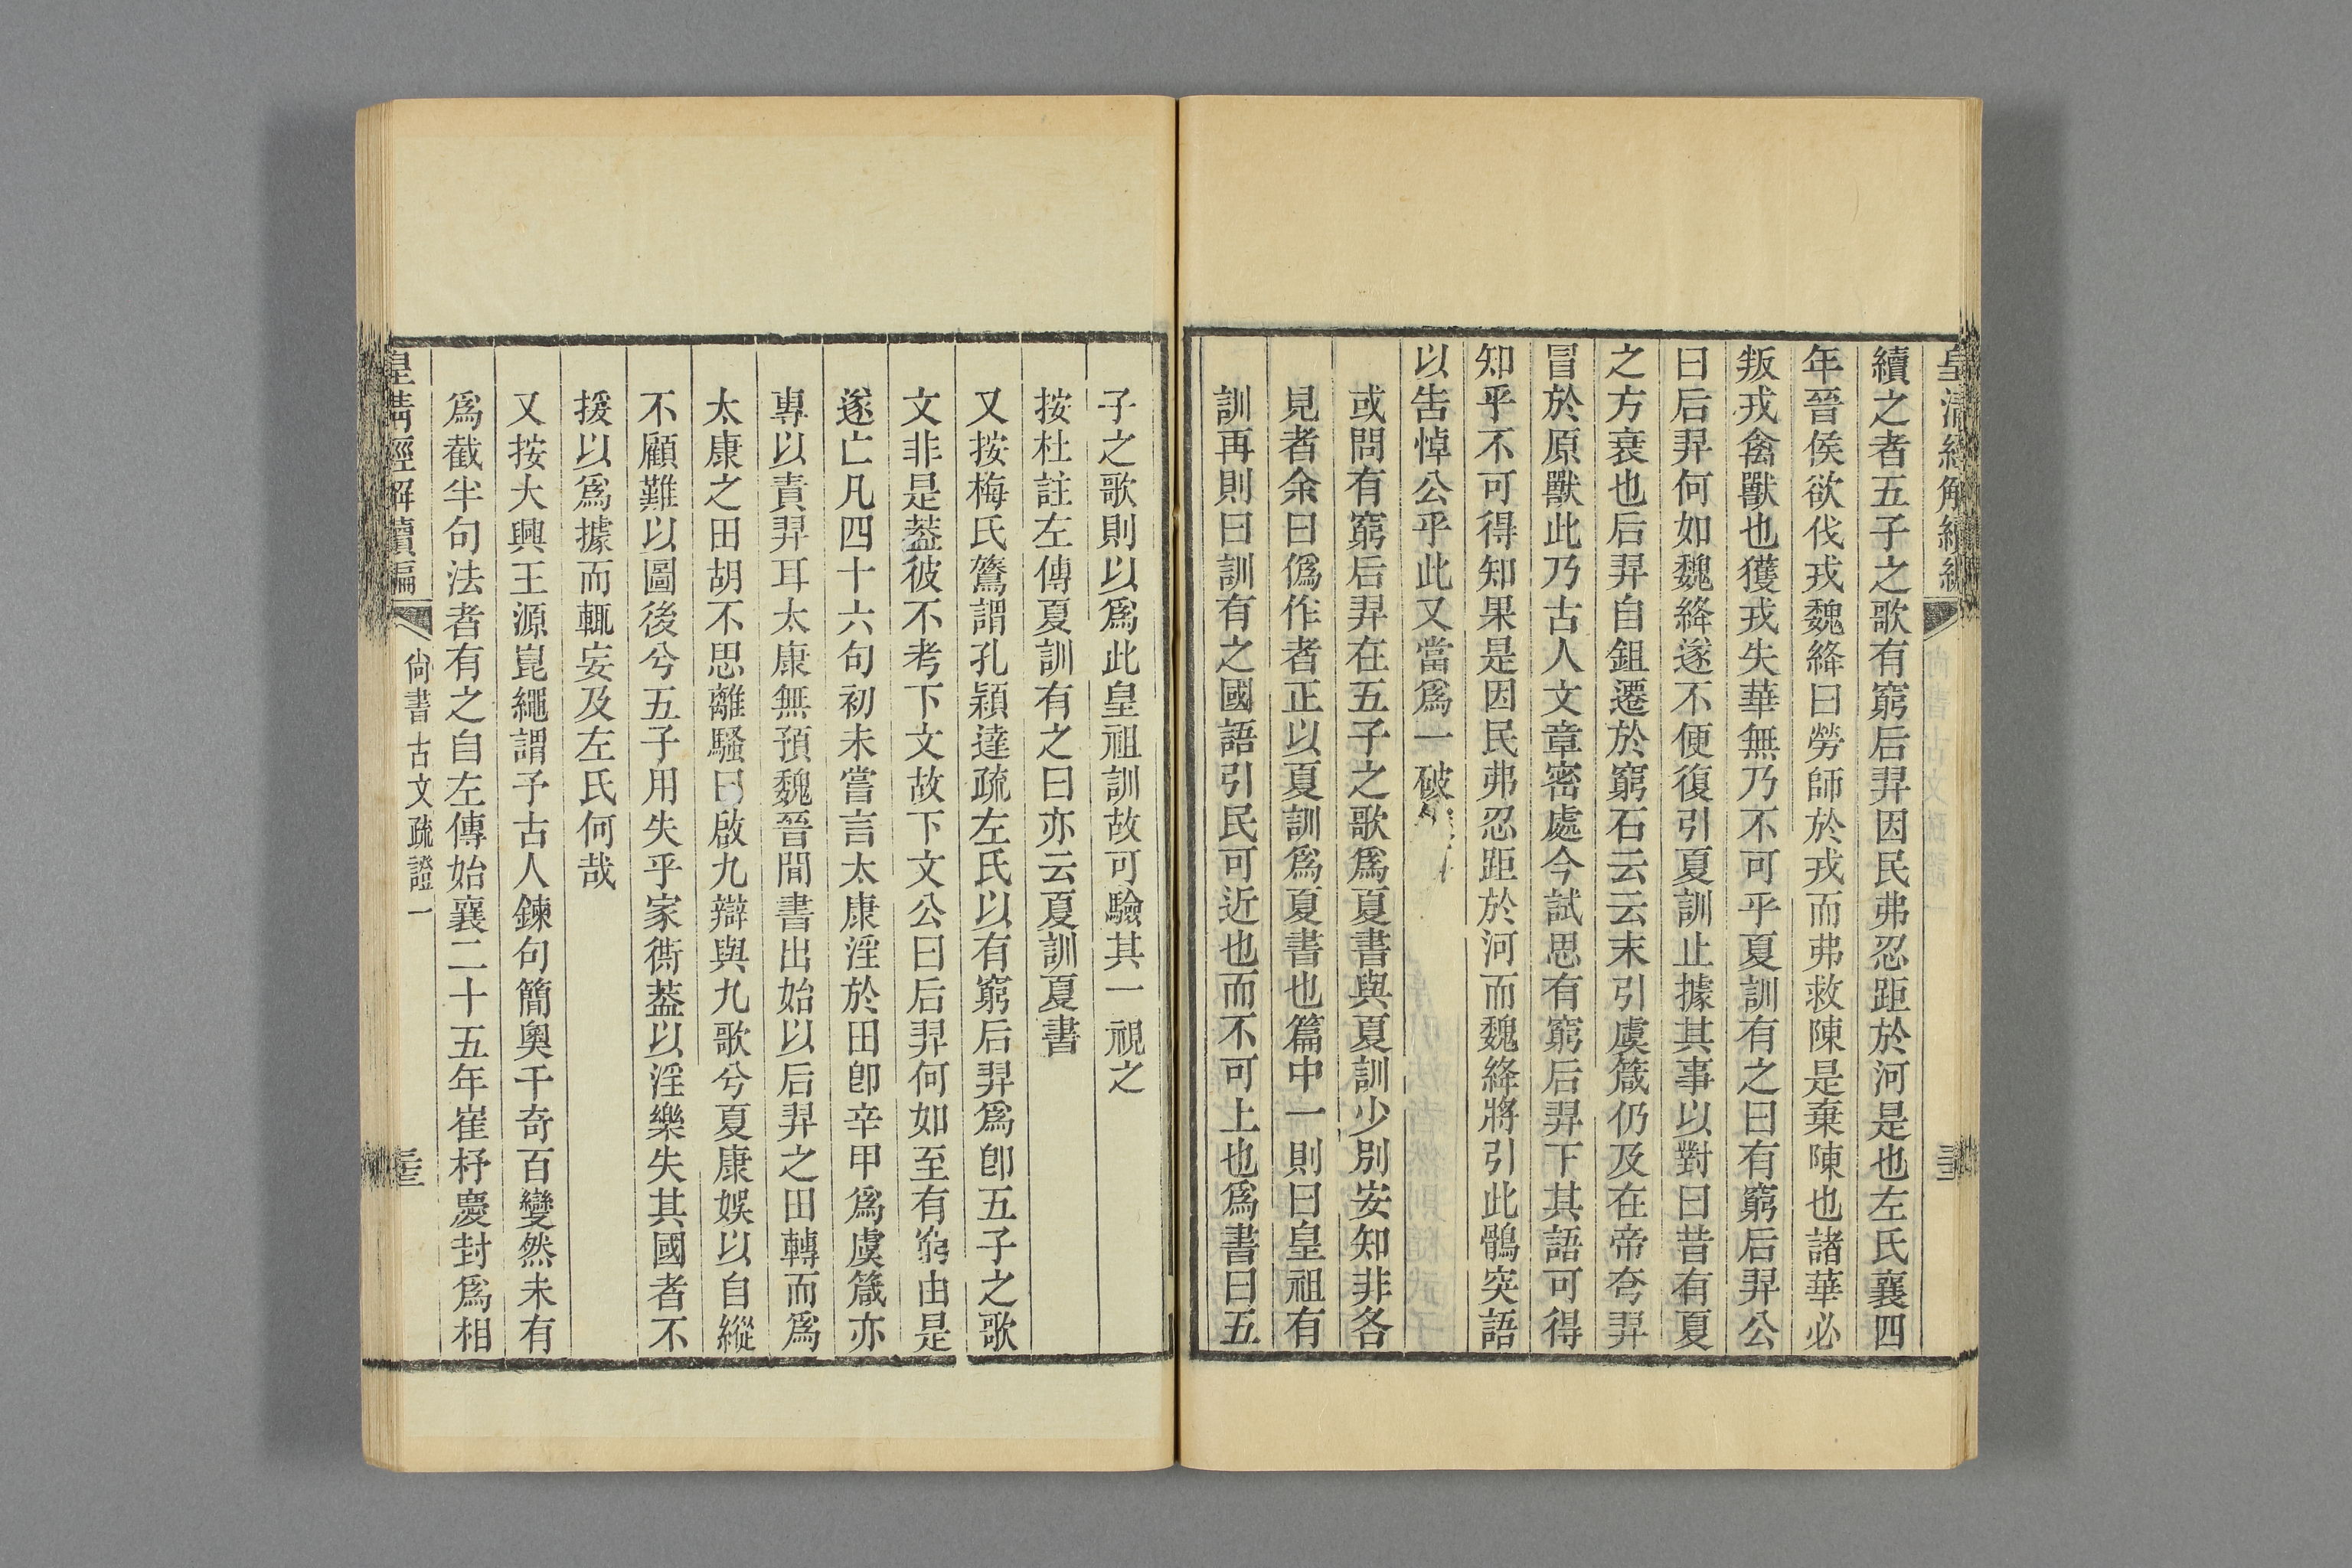 皇清經解續編
續之者五子之歌有窮后羿因民弗忍距於河是也左氏襄四
年晉侯欲伐戎魏絳曰勞師於戎而弗救陳是棄陳也諸華必
叛戎禽獸也獲戎失華無乃不可乎夏訓有之曰有窮后羿公
曰后羿何如魏絳遂不便復引夏訓止據其事以對曰昔有夏
之方衰也后羿自鉏遷於窮石云云末引虞箴仍及在帝夸羿
冒於原獸此乃古人文章密處今試思有窮后羿下其語可得
知乎不可得知果是因民弗忍距於河而魏絳將引此鶻突語
以告悼公乎此又當爲一破
或問有窮后羿在五子之歌爲夏書與夏訓少別安知非各
見者余曰僞作者正以夏訓爲夏書也篇中一則曰皇祖有
訓再則曰訓有之國語引民可近也而不可上也爲書曰五
子之歌則以爲此皇祖訓故可驗其一視之
按杜註左傳夏訓有之曰亦云夏訓夏書
又按梅氏鷟謂孔穎達疏左氏以有窮后羿爲卽五子之歌
文非是葢彼不考下文故下文公曰后羿何如至有窮由是
遂亡凡四十六句初未嘗言太康淫於田卽辛甲爲虞箴亦
專以責羿耳太康無預魏晉閒書出始以后羿之田轉而爲
太康之田胡不思離騷曰啟九辯與九歌兮夏康娛以自縱
不顧難以圖後兮五子用失乎家衖葢以淫樂失其國者不
援以爲據而輒妄及左氏何哉
又按大興王源崑繩謂予古人鍊句簡奧千奇百變然未有
爲截半句法者有之自左傳始襄二十五年崔杼慶封爲相
皇清經解續編 尚書古文疏證一